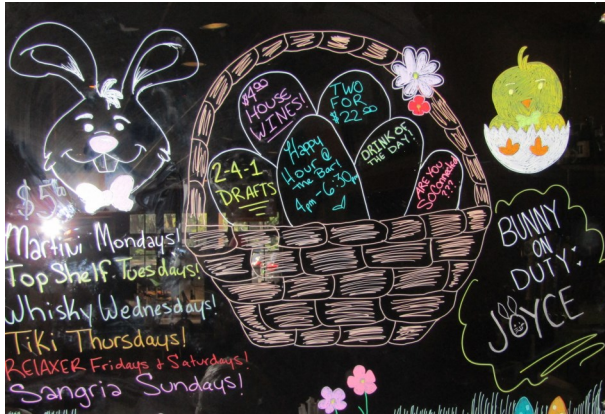 $5.00
Martini Mondays!
Top Shelf Tuesdays!
Whisky Wednesdays!
Tiki Thursdays!
RELAXER Fridays & Saturdays!
Sangria Sundays!
$4.00
HOUSE
WINES!
TWO
FOR
$22.00
2-4-1
DRAFTS
Happy
Hour @
the Bar!
4pm-6:30pm
DRINK OF
THE DAY!
ARE YOU
SoConnected
???
BUNNY
ON
DUTY:
JOYCE